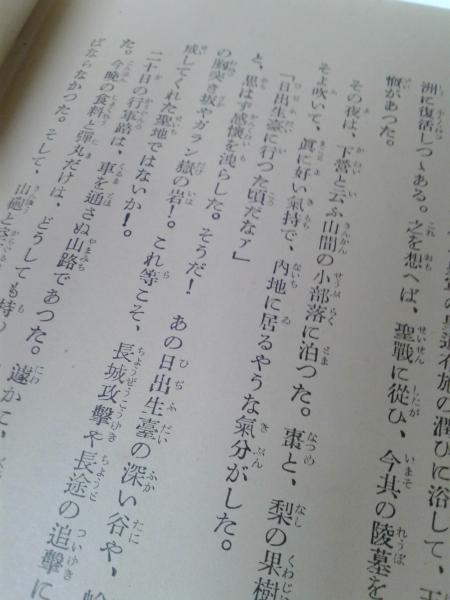 の皇道不施の潤ひに浴して、王
洲に復活しつゝある。之を想へば、聖戰に從ひ、今其の陵墓を
慨があつた。
その夜は、下營と云ふ山間の小部落に泊つた。棗と、梨の果樹
そよ吹いて、眞に好い氣持で、内地に居るやうな氣分がした。
「日出生臺に行つた頃だなァ」
と、思はず感懷を洩らした。そうだ！　あの日出生臺の深い谷や、
の胸突き坂やガラン嶽の岩！。これ等こそ、長城攻擊や長途の追擊に
成してくれた聖地ではないか！。
二十日の行軍路は、車を通さぬ山路であつた。遽かに、
た。今晩の食料と彈丸だけは、どうしても持つ
ばならなかつた。そして、山砲と